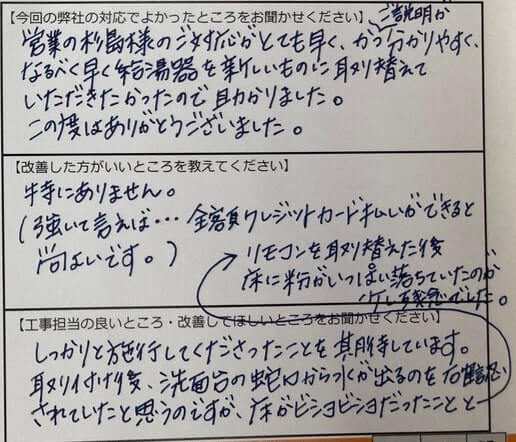 【今回の弊社の対応でよかったところをお聞かせください】
営業の松島様のご対応がとても早く、ご説明がかつ分かりやすく、
なるべく早く給湯器を新しいものに取り替えて
いただきたかったので助かりました。
この度はありがとうございました。
【改善した方がいいところを教えてください】
特にありません。
(強いて言えば… 全額クレジットカード払いができると
尚良いです。)
【工事担当の良いところ・改善してほしいところをお聞かせください】
しっかりと施行してくださったことを期待しています。
取り付け後、洗面台の蛇口から水が出るのを確認
されていたと思うのですが、床がビショビショだったことと
リモコンを取り替えた後
床に粉がいっぱい落ちていたのが
少し残念でした。